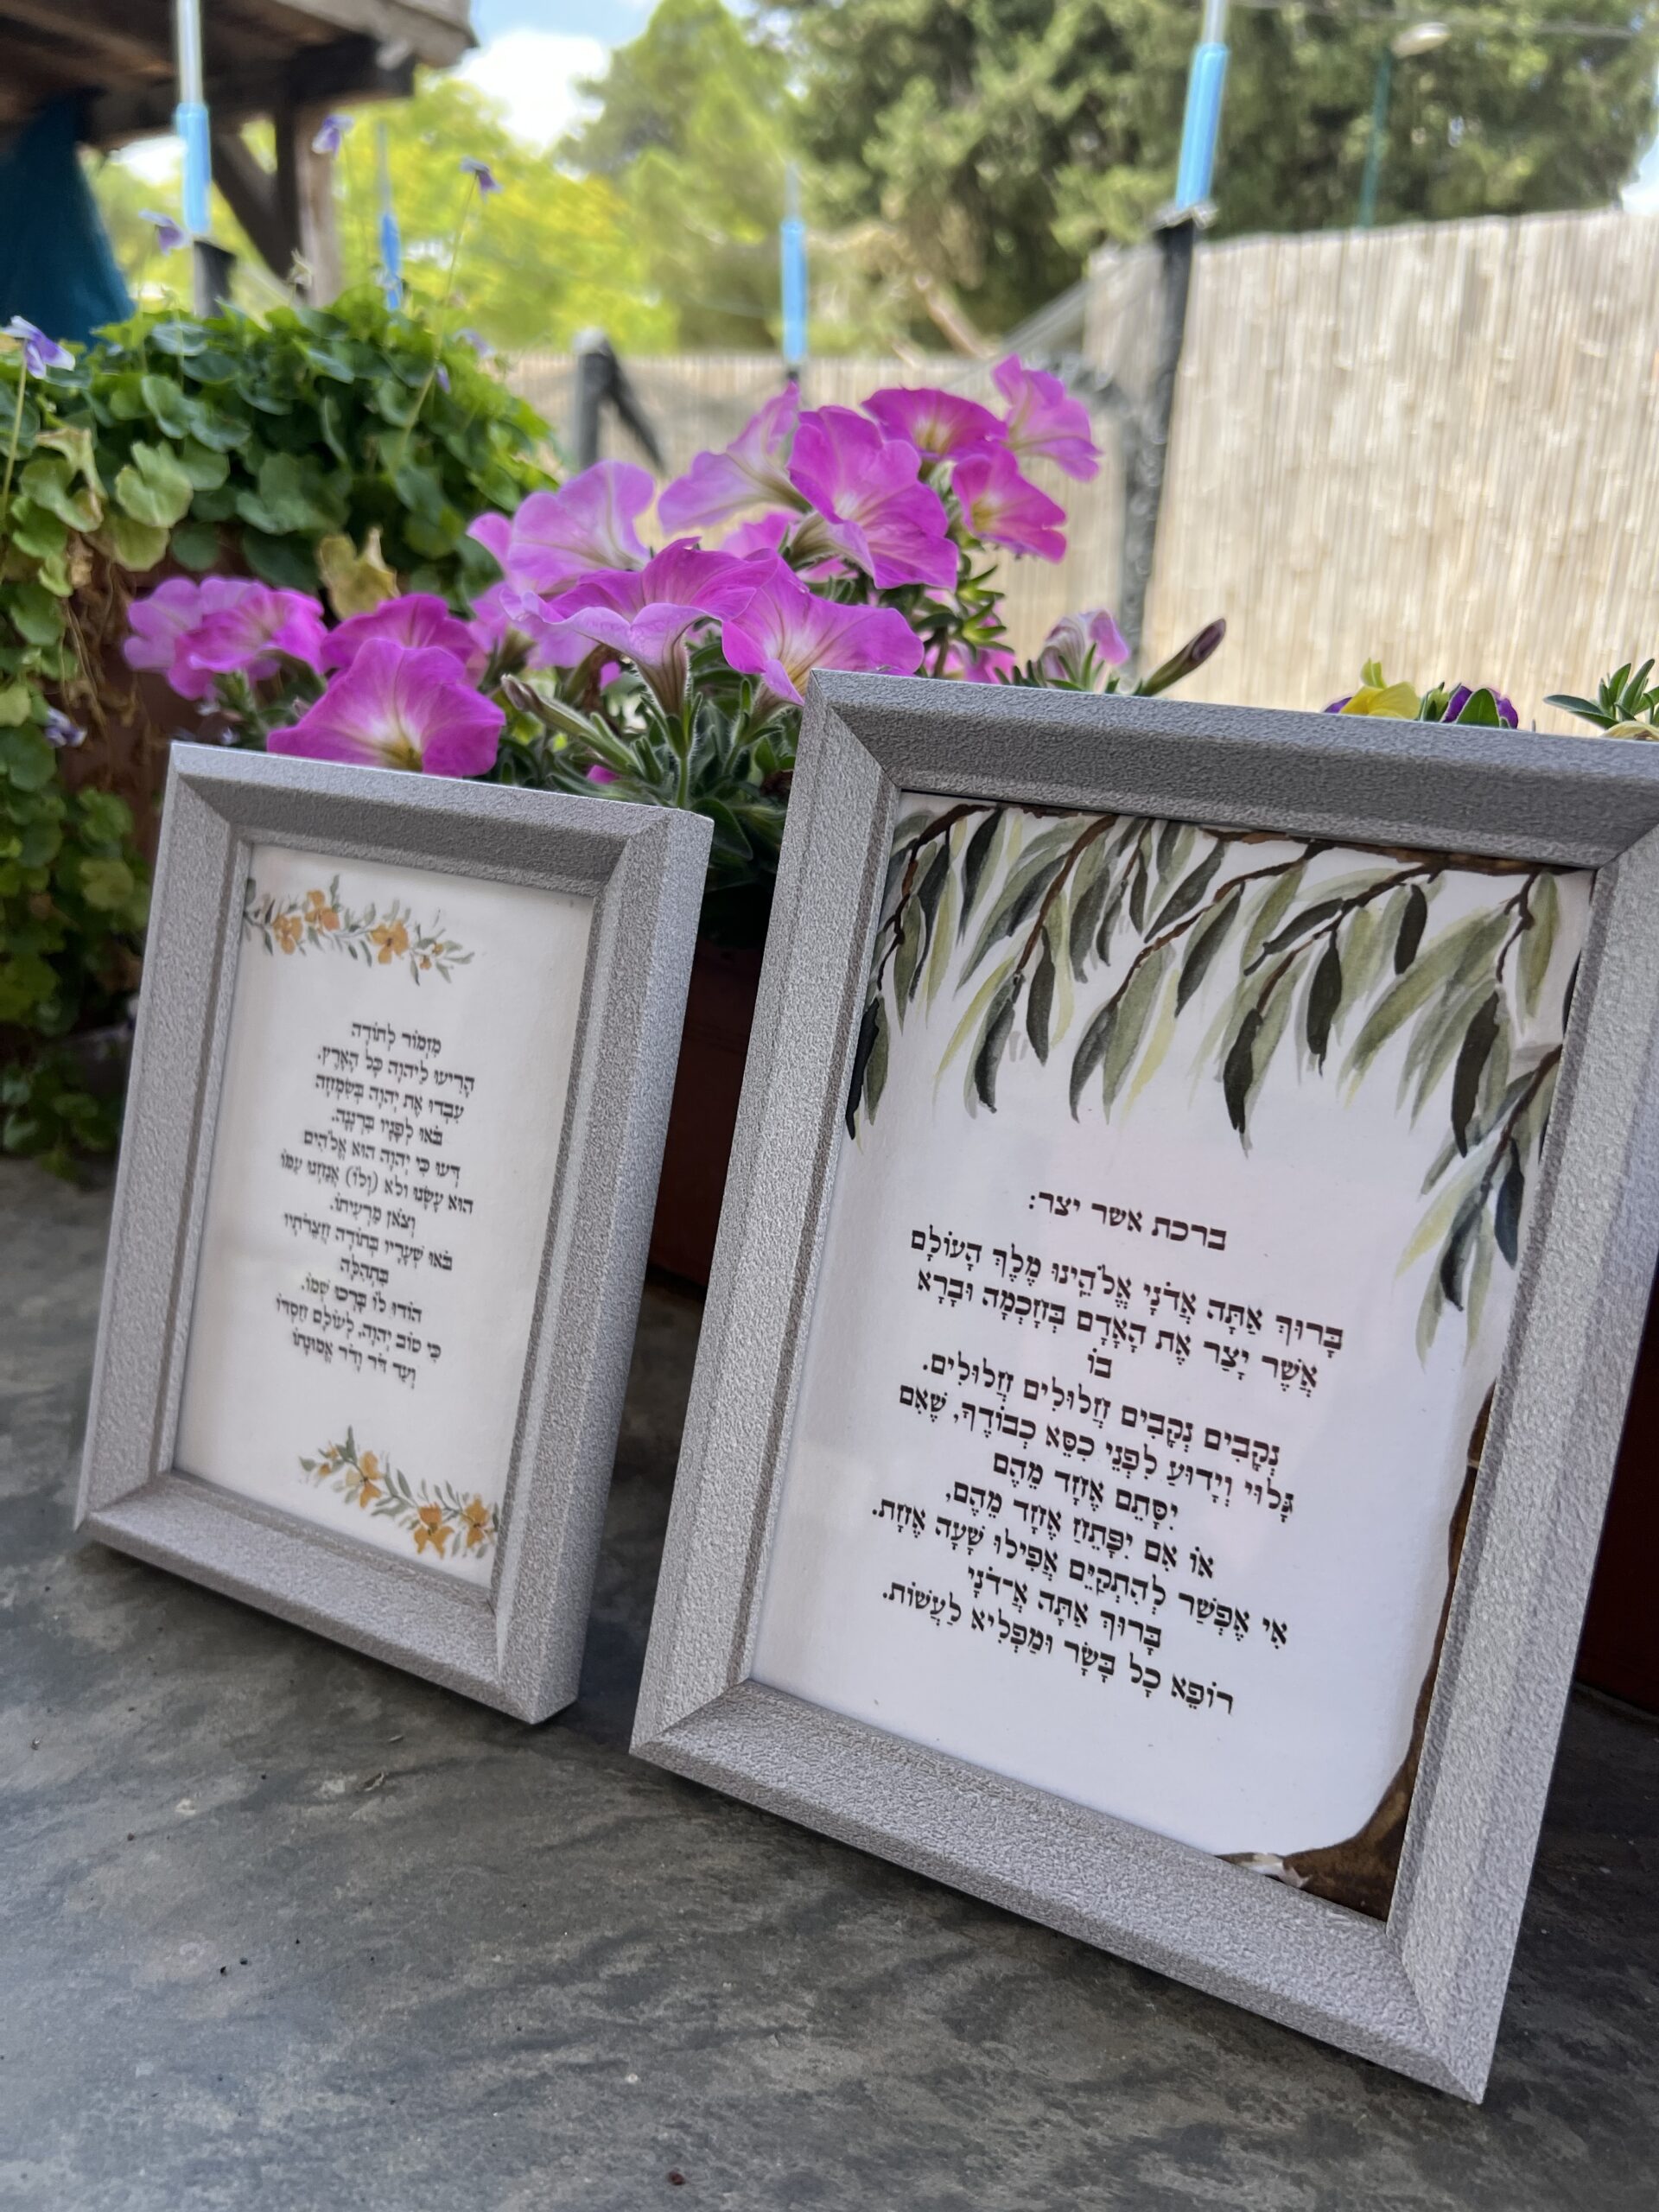 ברכת אשר יצר:
בָּרוּךְ אַתָּה אֲדֹנָי אֱלֹהֵֽינוּ מֶלֶךְ הָעוֹלָם
אֲשֶׁר יָצַר אֶת הָאָדָם בְּחָכְמָה וּבָרָא
בוֹ
נְקָבִים נְקָבִים חֲלוּלִים חֲלוּלִים.
גָּלוּי וְיָדוּעַ לִפְנֵי כִסֵּא כְבוֹדֶךָ, שֶׁאִם
יִסָּתֵם אֶחָד מֵהֶם
אוֹ אִם יִפָּתֵחַ אֶחָד מֵהֶם,
אִי אֶפְשַׁר לְהִתְקַיֵּם אֲפִילוּ שָׁעָה אֶחָת.
בָּרוּךְ אַתָּה אֲ-דֹנָי
רוֹפֵא כָל בָּשָׂר וּמַפְלִיא לַעֲשׂוֹת.
מִזְמוֹר לְתוֹדָה
הָרִיעוּ לַיהוָה כָּל הָאָרֶץ.
עִבְדוּ אֶת יְהוָה בְּשִׂמְחָה
בֹּאוּ לְפָנָיו בִּרְנָנָה.
דְּעוּ כִּי יְהוָה הוּא אֱלֹהִים
הוּא עָשָׂנוּ ולא (וְלוֹ) אֲנַחְנוּ עַמּוֹ
וְצֹאן מַרְעִיתוֹ.
בֹּאוּ שְׁעָרָיו בְּתוֹדָה חֲצֵרֹתָיו
בִּתְהִלָּה
הוֹדוּ לוֹ בָּרְכוּ שְׁמוֹ.
כִּי טוֹב יְהוָה, לְעוֹלָם חַסְדּוֹ
וְעַד דֹּר וָדֹר אֱמוּנָתוֹ